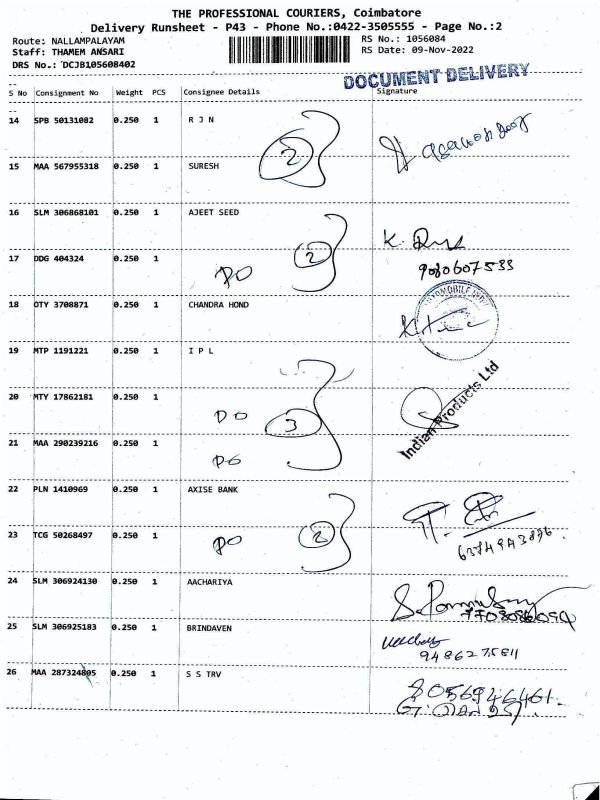 THE PROFESSIONAL COURIERS, Coimbatore
Delivery Runsheet - P43 - Phone No.:0422-3505555 - Page No.:2
Route: NALLAMPALAYAM RS No.: 1056084
Staff: THAMEM ANSARI RS Date: 09-Nov-2022
DRS No.: DCJB105608402
DOCUMENT DELIVERY
S No Consignment No Weight PCS Consignee Details Signature
14 SPB 50131082 0.250 1 R J N
2
15 MAA 567955318 0.250 1 SURESH
16 SLM 306868101 0.250 1 AJEET SEED
K.
2
17 DDG 404324 0.250 1 DO 9080607533
18 OTY 3708871 0.250 1 CHANDRA HOND
19 MTP 1191221 0.250 1 I P L
Indian Products Ltd
20 MTY 17862181 0.250 1 DO
3
21 MAA 290239216 0.250 1 DO
22 PLN 1410969 0.250 1 AXISE BANK
2
23 TCG 50268497 0.250 1 DO
24 SLM 306924130 0.250 1 AACHARIYA
25 SLM 306925183 0.250 1 BRINDAVEN
9486275811
26 MAA 287324805 0.250 1 S S TRV
8056946461